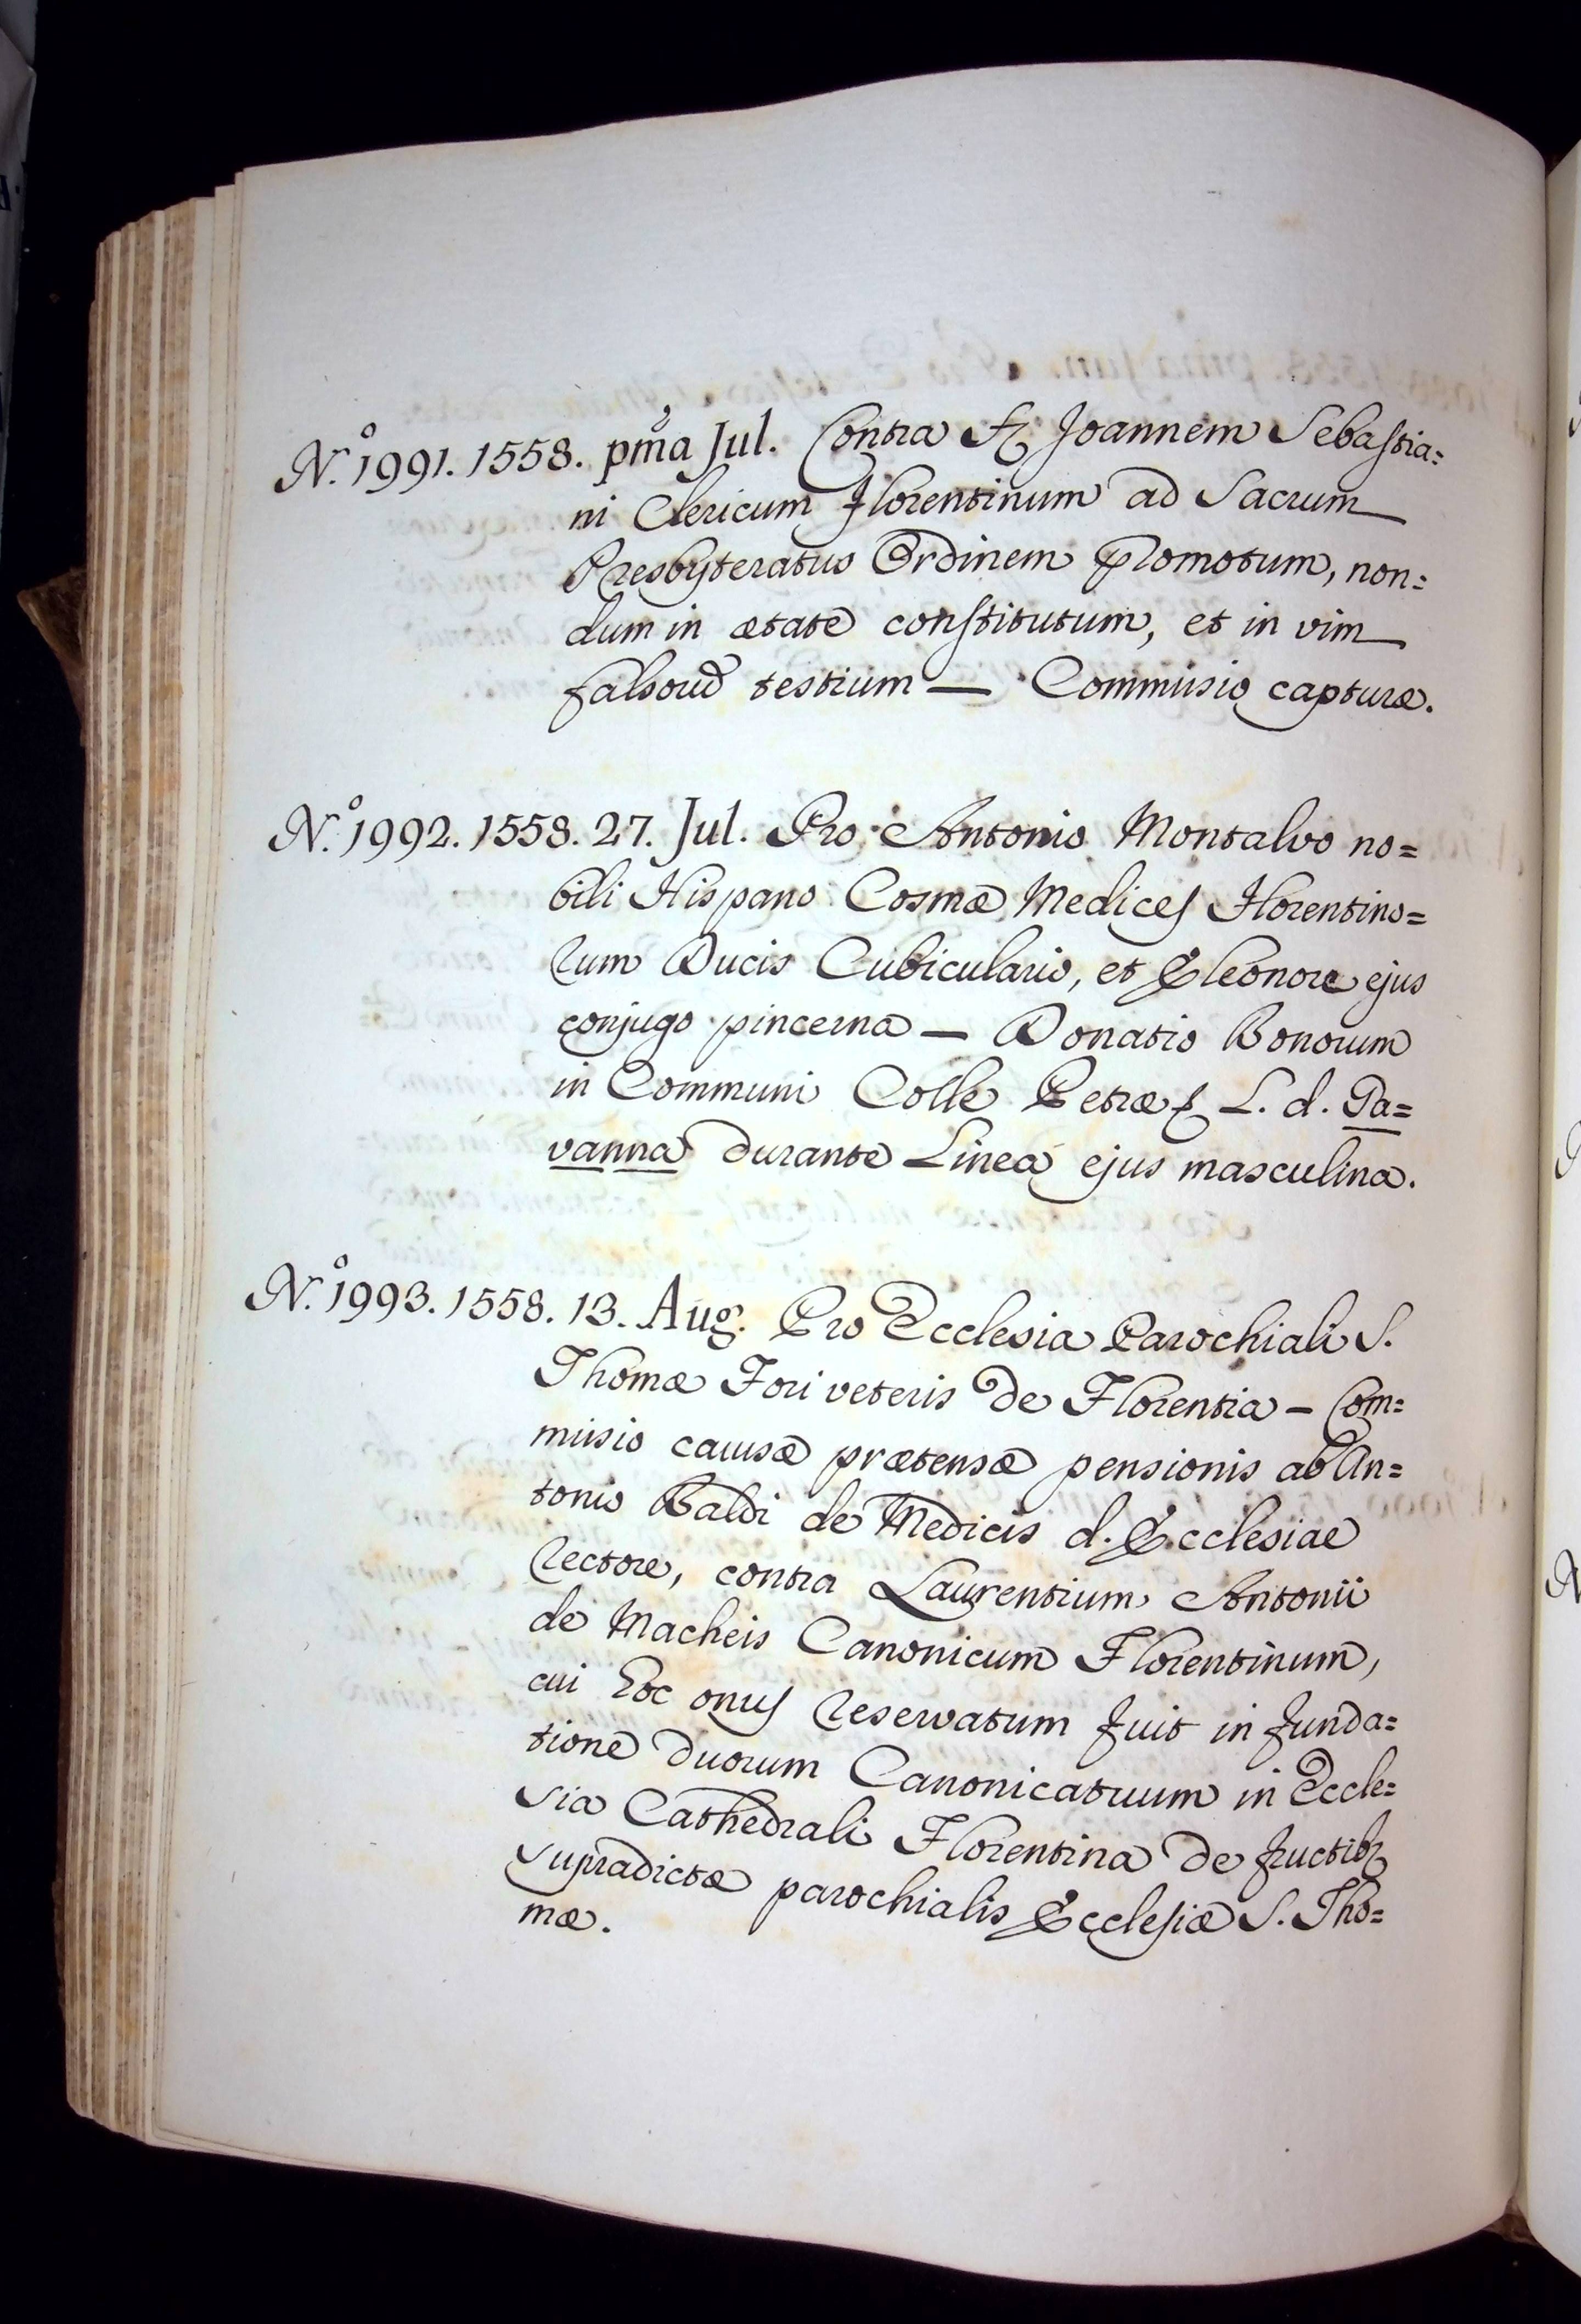 N.º 1991. 1558. pm̃a Jul. Contra Fr. Joannem Sebastia=
ni Clericum Florentinum ad Sacrum
Presbyteratus Ordinem promotum, non=
dum in ætate constitutum, et in vim
testium — Commissio capturæ.
N.º 1992. 1558. 27. Jul. Pro Antonio Montalvo no=
bili Hispano Cosmæ Medices Florentino=
rum Ducis Cubiculario, et Eleonore ejus
conjugo pincerna — Donatio Bonorum
in Communi Colle Petræ L. d. Pa=
vanna durante Linea ejus masculina.
N.º 1993. 1558. 13. Aug. Pro Ecclesia Parochiali S.
Thomæ Fori veteris de Florentia – Com=
missio causæ prætensæ pensionis ab An=
tonio Baldi de Medicis d. Ecclesiae
Rectore, contra Laurentium Antonii
de Macheis Canonicum Florentinum,
cui hoc onus reservatum fuit in funda=
tione duorum Canonicatuum in Eccle=
sia Cathedrali Florentina de fructib9
supradictæ parochialis Ecclesiæ S. Tho=
mæ.